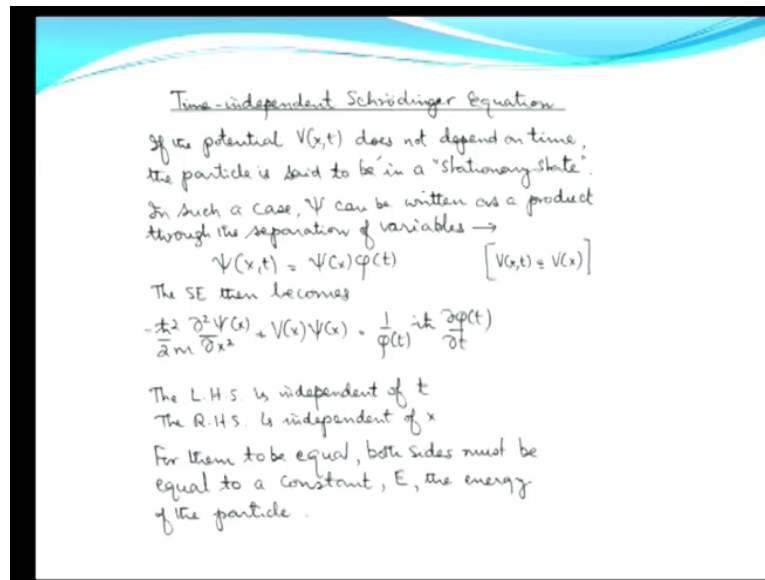 Time-independent Schrödinger Equation
If the potential V(x,t) does not depend on time,
the particle is said to be in a "stationary state".
In such a case, Ψ can be written as a product
through the separation of variables →
Ψ(x,t) = Ψ(x)φ(t) [V(x,t) = V(x)]
The SE then becomes
-ħ²/2m ∂²Ψ(x)/∂x² + V(x)Ψ(x) = 1/φ(t) iħ ∂φ(t)/∂t
The L.H.S. is independent of t
The R.H.S. is independent of x
For them to be equal, both sides must be
equal to a constant, E, the energy
of the particle.